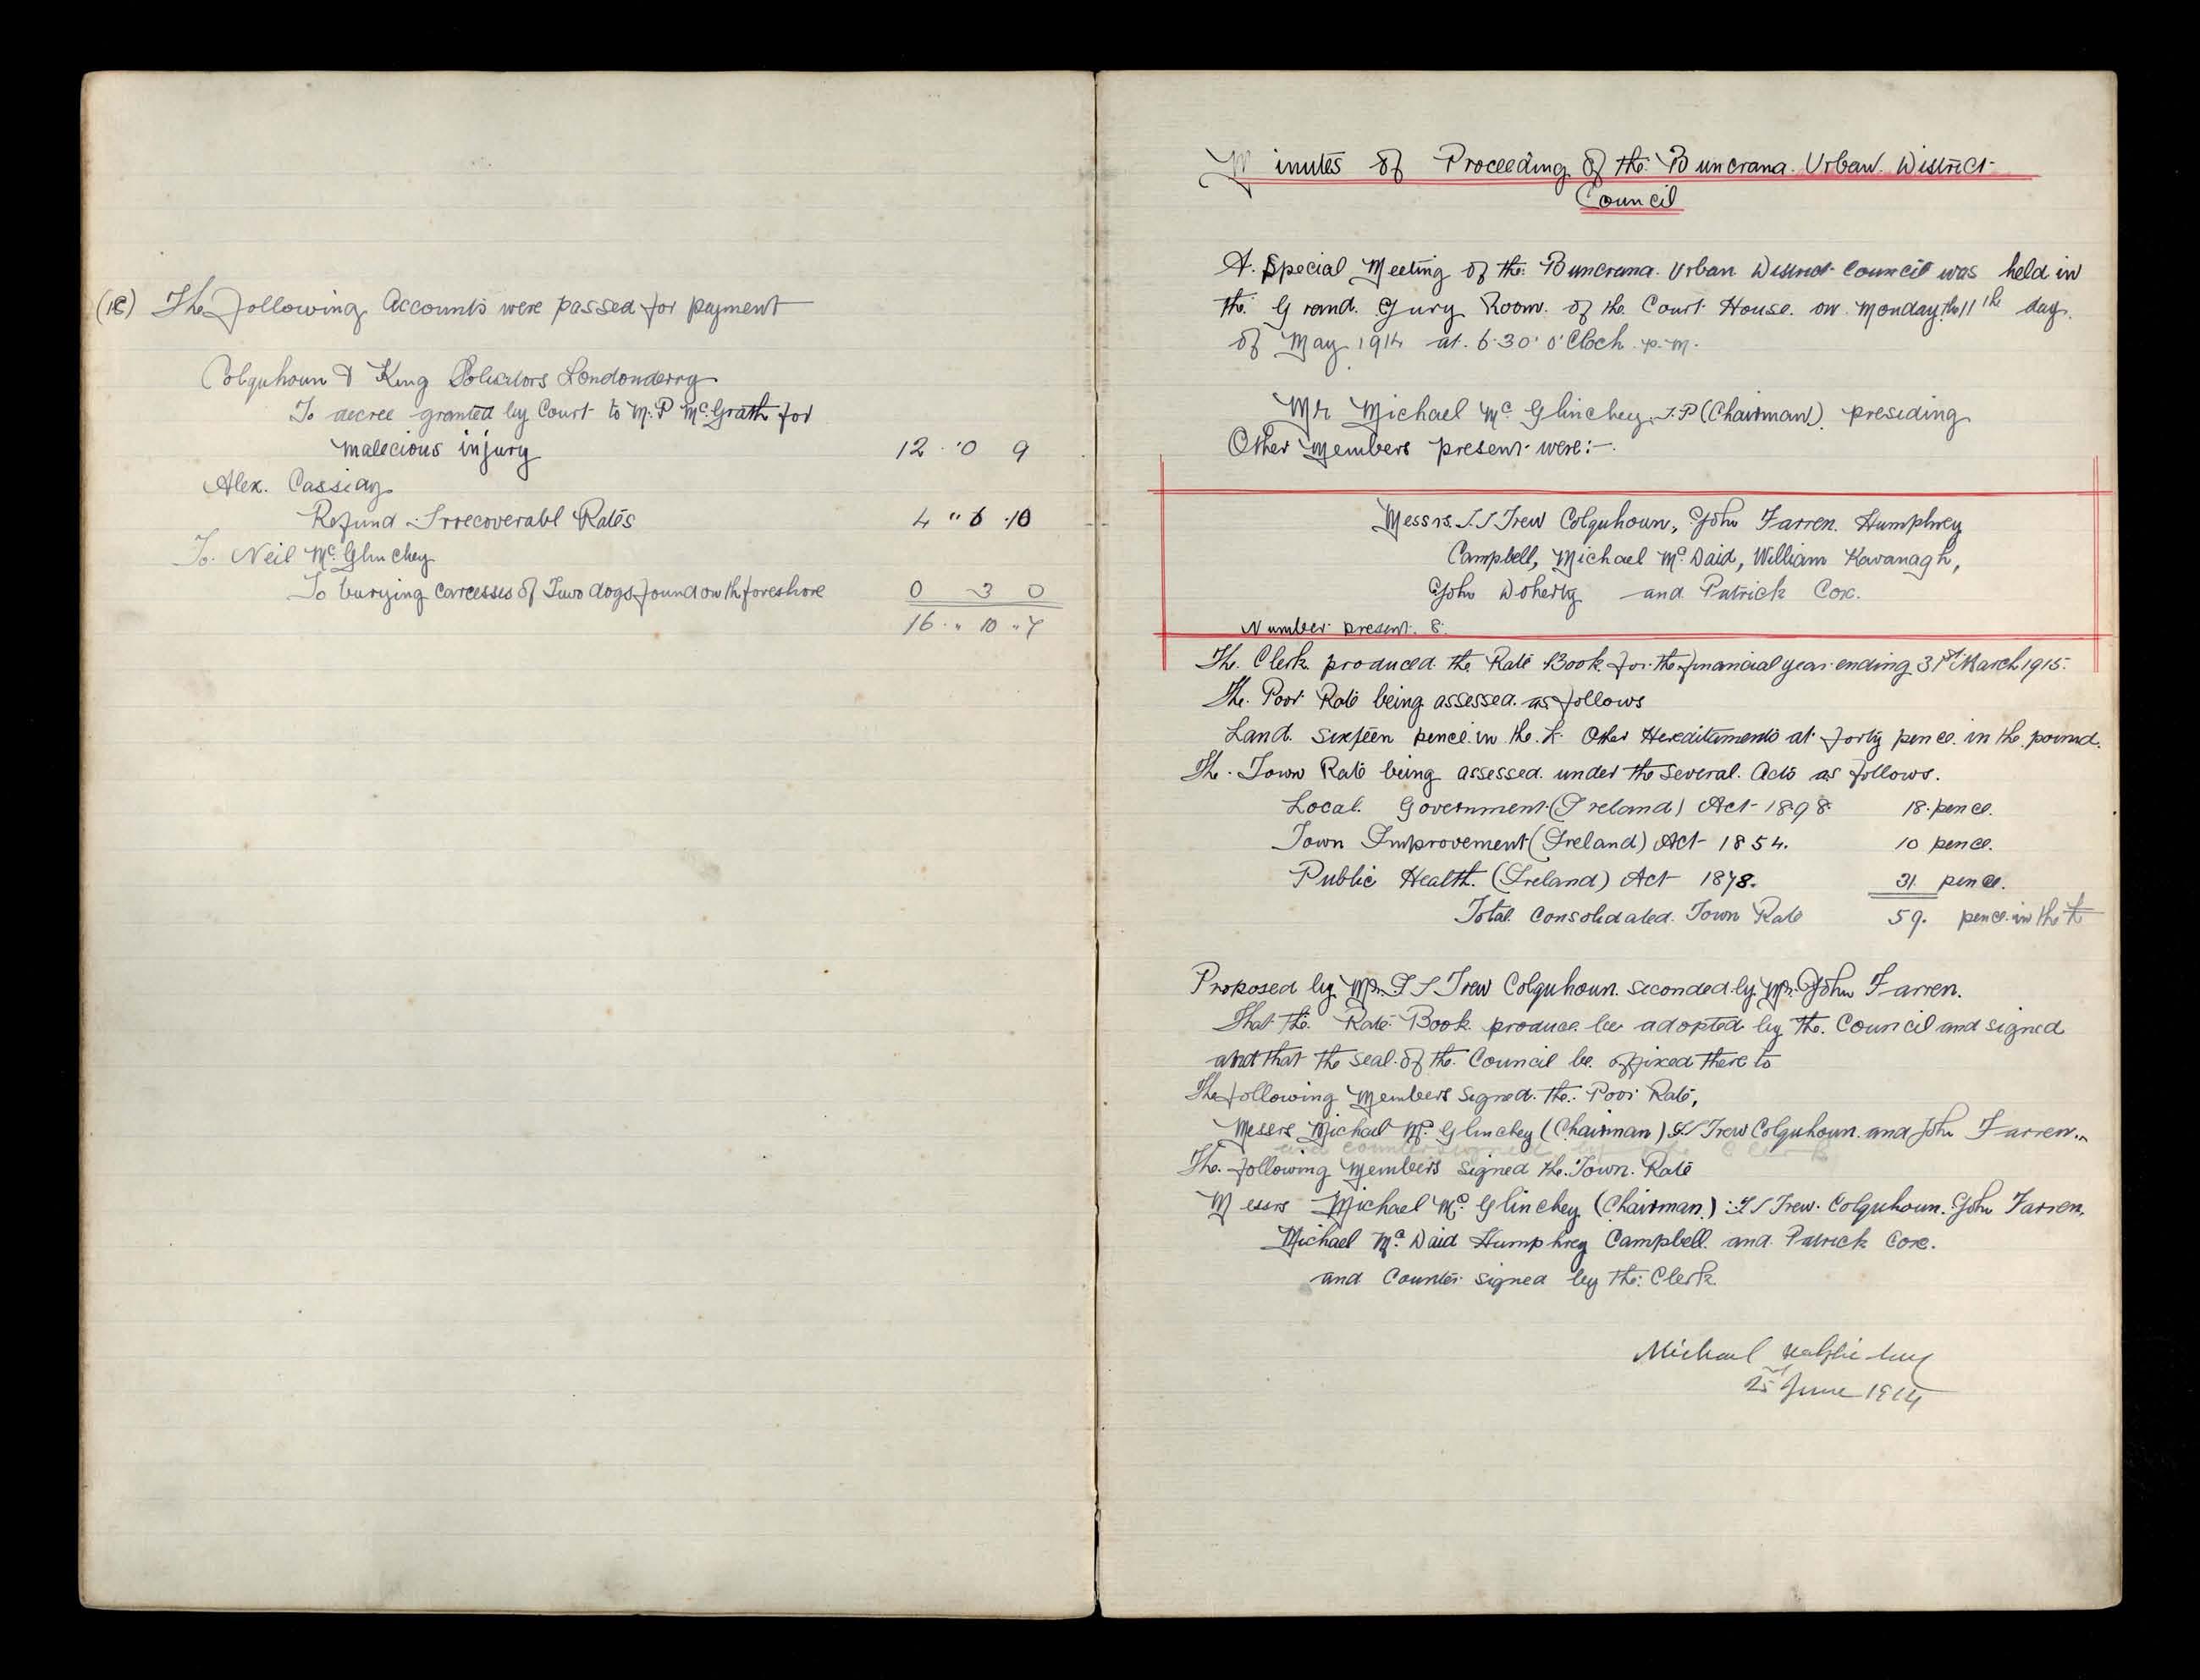 (18) The following Accounts were passed for payment
Colquhoun & King Solicitors Londonderry
To decree granted by Court to M. P McGrath for
malecious injury 12 " 0 9
Alex. Cassidy
Refund Irrecoverabl Rates 4 " 6 10
To Neil McGlinchey
To burying carcesses of Two dogs found on th foreshore 0 3 0
16 " 10 " 7
Minutes of Proceeding of the Buncrana Urban District
Council
A Special Meeting of the Buncrana Urban District Council was held in
the Grand Jury Room of the Court House on Monday the 11th day
of May 1914 at 6.30 o'Clock p.m.
Mr Michael McGlinchey J.P (Chairman) presiding
Other Members present were:-
Messrs. I. S Trew Colquhoun, John Farren Humphrey
Campbell, Michael McDaid, William Kavanagh,
John Doherty and Patrick Cox.
Number present. 8.
The Clerk produced the Rate Book for the financial year ending 31st March 1915.
The Poor Rate being assessed as follows
Land sixteen pence in the £. Other Hereditaments at forty pence in the pound.
The Town Rate being assessed under the several Acts as follows.
Local Government (Ireland) Act 1898 18 pence.
Town Improvement (Ireland) Act 1854. 10 pence.
Public Health (Ireland) Act 1878. 31 pence.
Total Consolidated Town Rate 59. pence in the £
Proposed by Mr. I S Trew Colquhoun seconded by Mr. John Farren.
That the Rate Book produce be adopted by the Council and signed
and that the seal of the Council be affixed there to
The following Members signed the Poor Rate,
Messrs Michael McGlinchey (Chairman) I S Trew Colquhoun and John Farren
and countersigned by the Clerk
The following Members signed the Town Rate
Messrs Michael McGlinchey (Chairman) I S Trew Colquhoun John Farren,
Michael McDaid Humphrey Campbell and Patrick Cox.
and Counter signed by the Clerk
Michael McGlinchey
25 June 1914